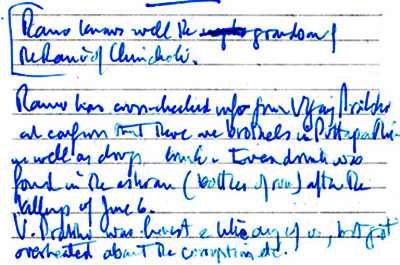 Ramo knows well the grandson of
the Rani of Chincholi.
Ramo has cross-checked info from Vijay Prabhu
and confirms that there are brothels in Puttaparthi
as well as drugs, drink. Even drink was
found in the ashram (bottles of rum) after the
killings of June 6.
V. Prabhu was honest & like any of us, but got
overheated about the corruption etc.